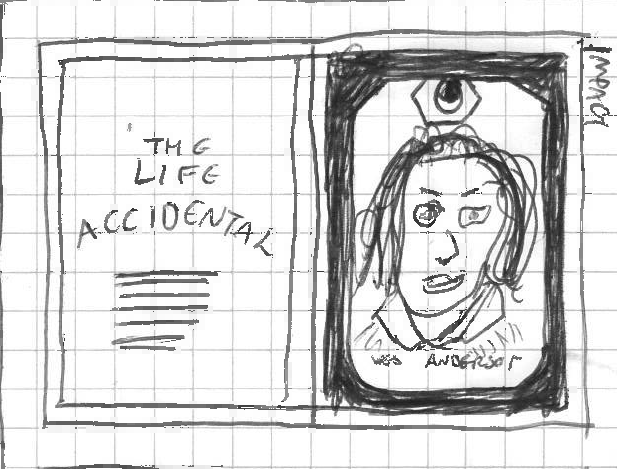 THE
LIFE
ACCIDENTAL
WES ANDERSON
IMPACT